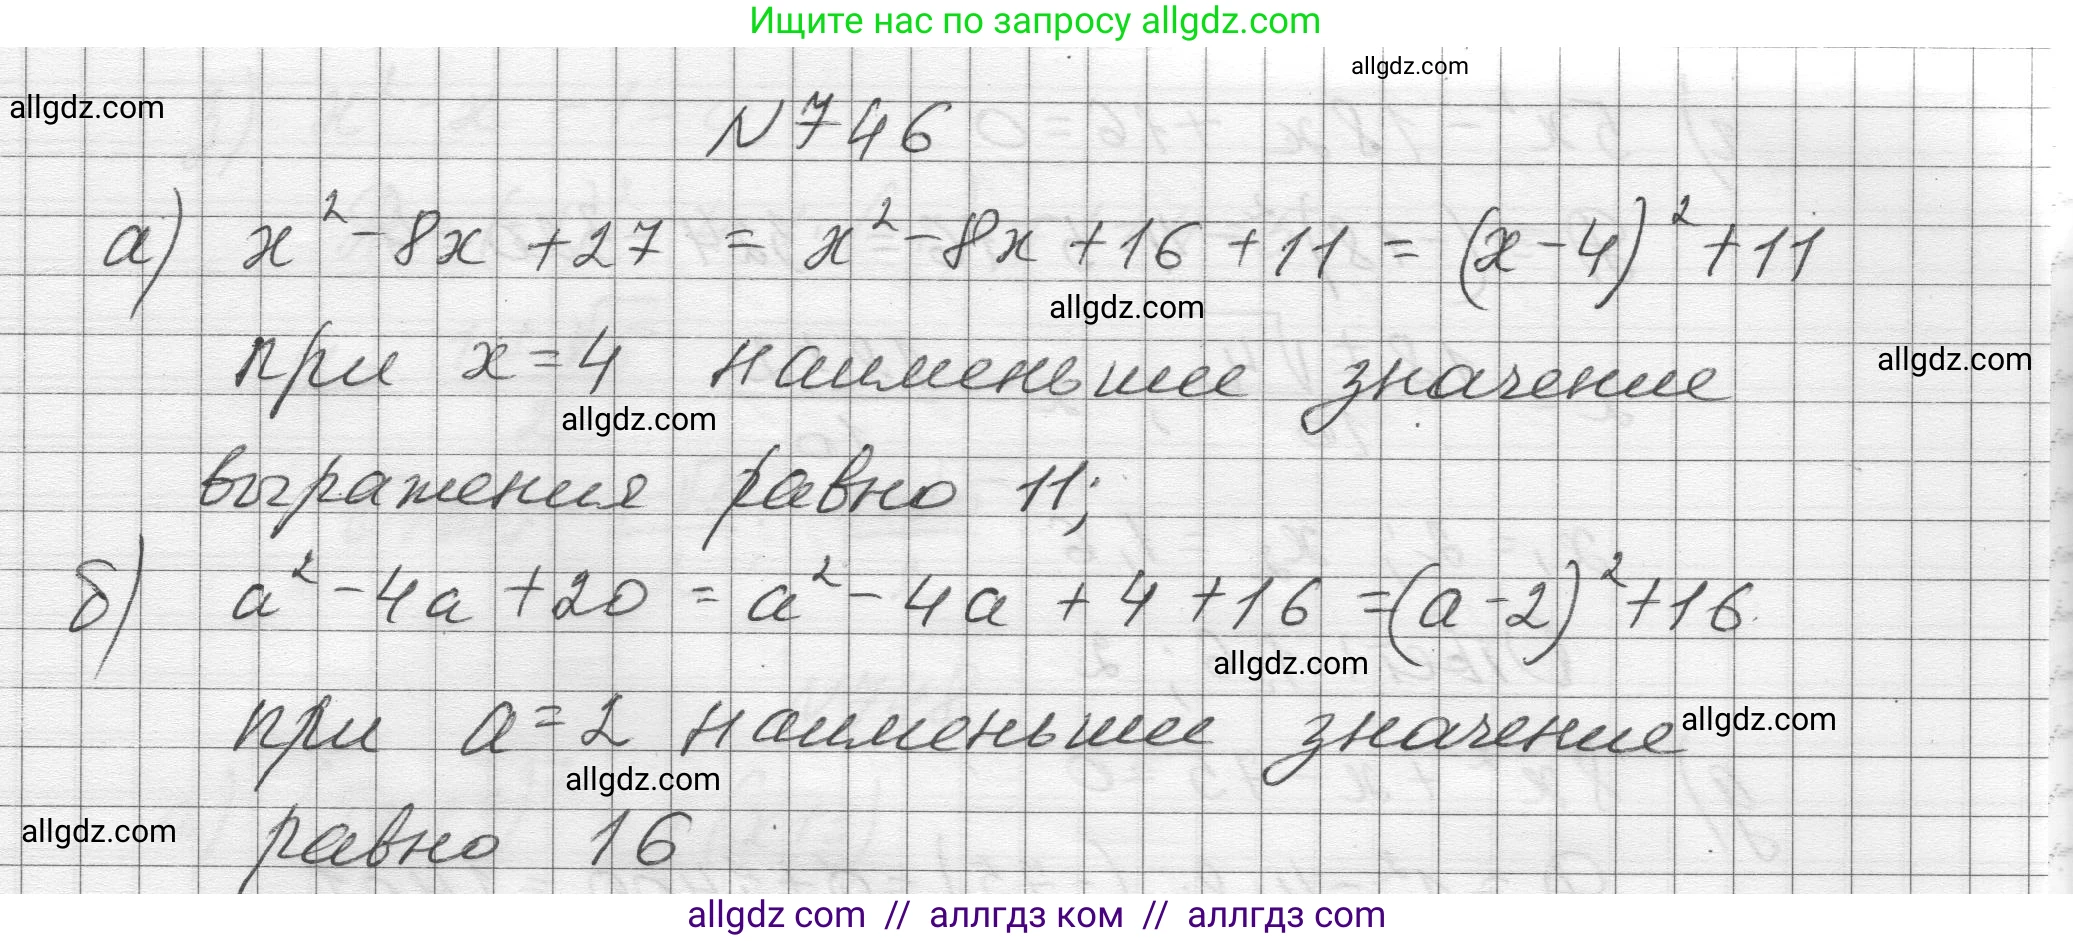 Ищите нас по запросу allgdz.com
allgdz.com
allgdz.com
N 746
а) x² - 8x + 27 = x² - 8x + 16 + 11 = (x - 4)² + 11
allgdz.com
при x = 4 наименьшее значение
allgdz.com
allgdz.com
выражения равно 11;
б) a² - 4a + 20 = a² - 4a + 4 + 16 = (a - 2)² + 16.
allgdz.com
при a = 2 наименьшее значение
allgdz.com
allgdz.com
равно 16
allgdz.com
allgdz com // аллгдз ком // аллгдз com